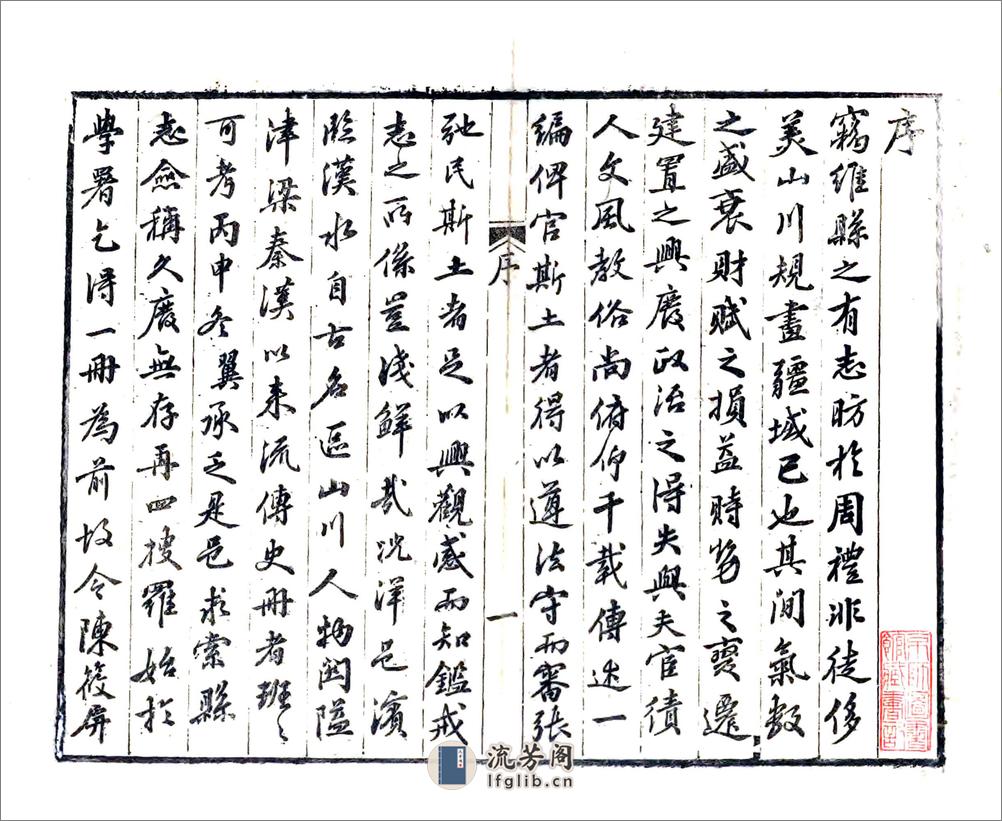 序
竊維縣之有志昉於周禮非徒侈
美山川規畫疆域已也其間氣數
之盛衰財賦之損益時勢之變遷
建置之興廢政治之得失與夫宦績
人文風教俗尚俯仰千載傳述一
編俾官斯土者得以遵法守而審張
序
一
弛民斯土者足以興觀感而知鑑戒
志之所係豈淺鮮哉況洋邑濱
臨漢水自古名區山川人物關隘
津梁秦漢以來流傳史冊者班〻
可考丙申冬翼承乏是邑求索縣
志僉稱久廢無存再四搜羅始於
學署乞得一冊為前故令陳筱屏
流芳阁
lfglib.cn